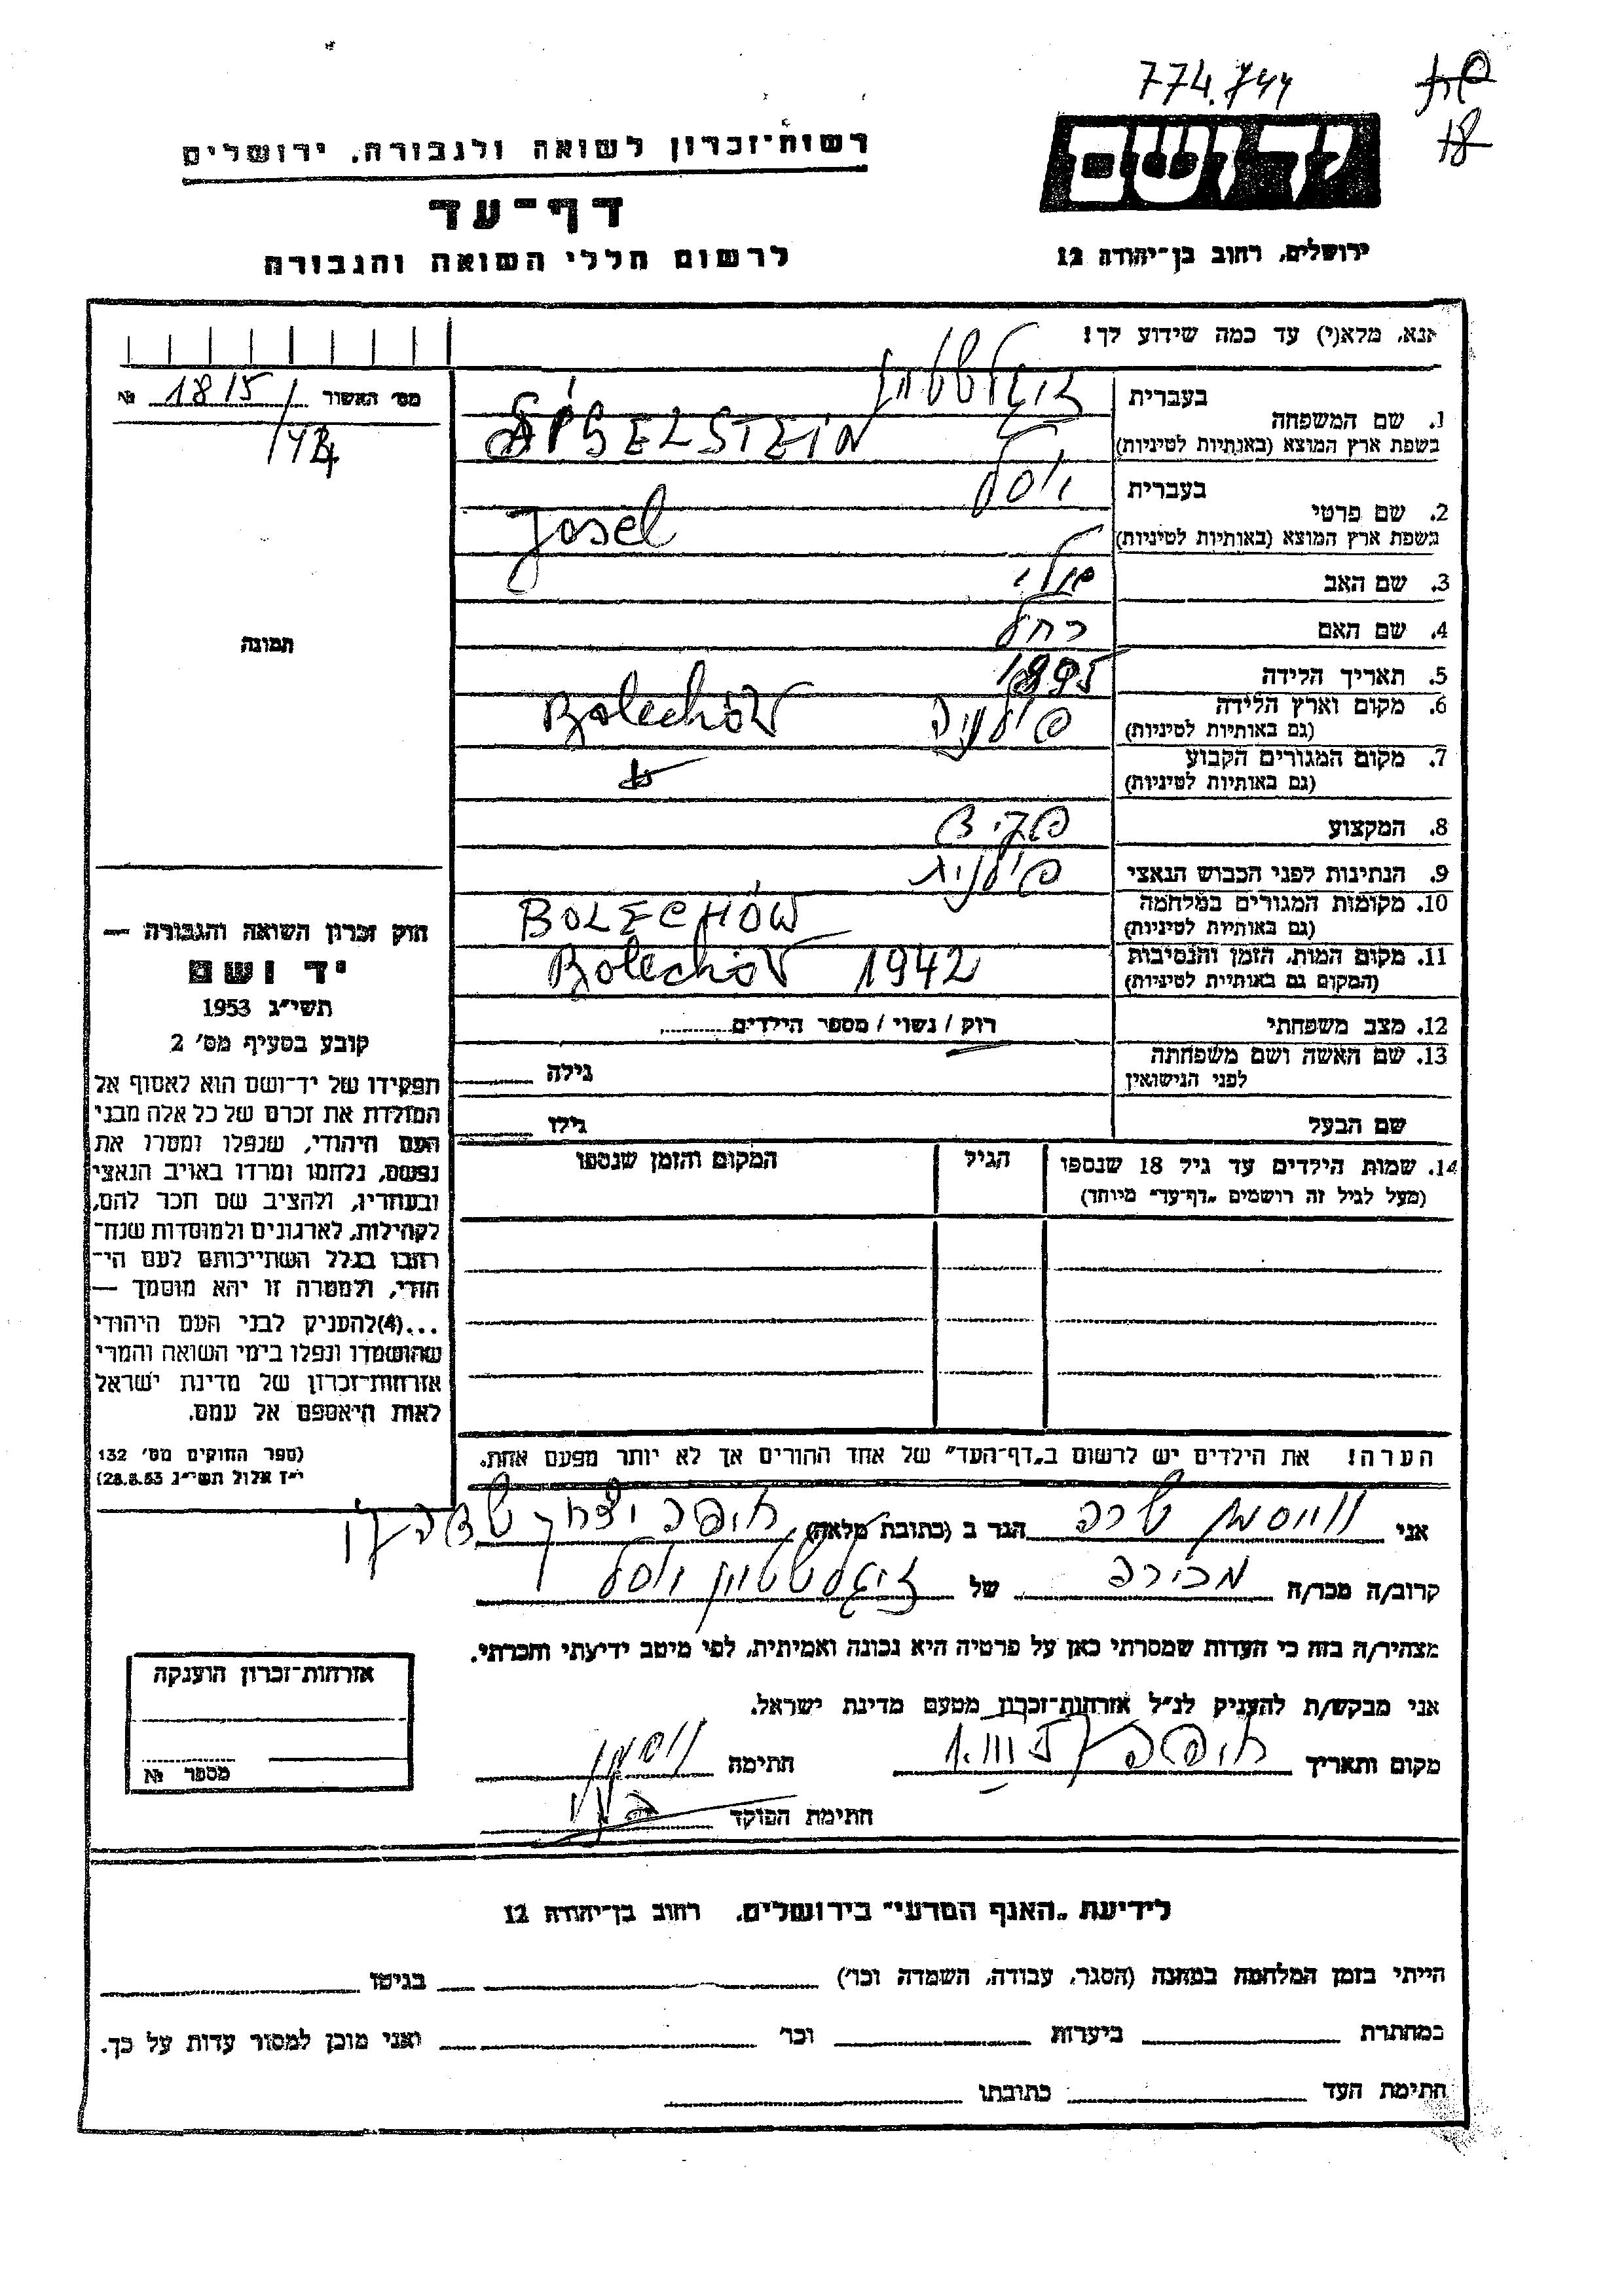 774.744
18
יד ושם
רשות־זכרון לשואה ולגבורה, ירושלים
דף־עד
לרשום חללי השואה והגבורה
ירושלים, רחוב בן־יהודה 12
אנא, מלא(י) עד כמה שידוע לך!
מס׳ האשור 1815 №
1. שם המשפחה
בעברית זיגלשטיין
בשפת ארץ המוצא (באותיות לטיניות)
2. שם פרטי
בעברית יוסל
בשפת ארץ המוצא (באותיות לטיניות) Josel
3. שם האב
4. שם האם רחל
5. תאריך הלידה 1895
6. מקום וארץ הלידה פולניה Bolechów
(גם באותיות לטיניות)
7. מקום המגורים הקבוע
(גם באותיות לטיניות)
8. המקצוע פקיד
9. הנתינות לפני הכבוש הנאצי פולנית
10. מקומות המגורים במלחמה BOLECHÓW
(גם באותיות לטיניות)
11. מקום המות, הזמן והנסיבות Bolechów 1942
(המקום גם באותיות לטיניות)
12. מצב משפחתי רוק / נשוי / מספר הילדים
13. שם האשה ושם משפחתה
לפני הנישואין
גילה
שם הבעל גילו
14. שמות הילדים עד גיל 18 שנספו הגיל המקום והזמן שנספו
(מעל לגיל זה רושמים „דף־עד״ מיוחד)
הערה! את הילדים יש לרשום ב„דף־העד״ של אחד ההורים אך לא יותר מפעם אחת.
תמונה
חוק זכרון השואה והגבורה —
יד ושם
תשי״ג 1953
קובע בסעיף מס׳ 2
תפקידו של יד־ושם הוא לאסוף אל
המולדת את זכרם של כל אלה מבני
העם היהודי, שנפלו ומסרו את
נפשם, נלחמו ומרדו באויב הנאצי
ובעוזריו, ולהציב שם וזכר להם,
לקהילות, לארגונים ולמוסדות שנח־
רבו בגלל השתייכותם לעם הי־
הודי, ולמטרה זו יהא מוסמך —
...(4) להעניק לבני העם היהודי
שהושמדו ונפלו בימי השואה והמרי
אזרחות־זכרון של מדינת ישראל
לאות היאספם אל עמם.
(ספר החוקים מס׳ 132
י״ז אלול תשי״ג 28.8.53)
אני וויסמן שרה הגר ב (כתובת מלאה) חיפה יצחק
קרוב/ה מכר/ה מכירה של זיגלשטיין יוסל
מצהיר/ה בזה כי העדות שמסרתי כאן על פרטיה היא נכונה ואמיתית, לפי מיטב ידיעתי והכרתי.
אני מבקש/ת להעניק לנ״ל אזרחות־זכרון מטעם מדינת ישראל.
מקום ותאריך חיפה חתימה ויסמן
חתימת הפוקד
אזרחות־זכרון הוענקה
מספר №
לידיעת „האגף המדעי״ בירושלים, רחוב בן־יהודה 12
הייתי בזמן המלחמה במחנה (הסגר, עבודה, השמדה וכו׳) בגיטו
במחתרת ביערות וכו׳ ואני מוכן למסור עדות על כך.
חתימת העד כתובתו